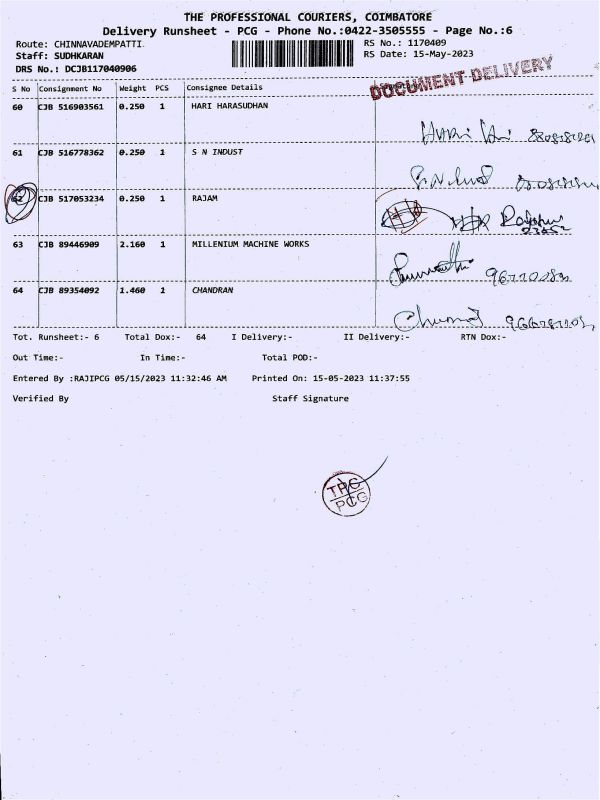 THE PROFESSIONAL COURIERS, COIMBATORE
Delivery Runsheet - PCG - Phone No.:0422-3505555 - Page No.:6
Route: CHINNAVADEMPATTI RS No.: 1170409
Staff: SUDHKARAN RS Date: 15-May-2023
DRS No.: DCJB117040906
DOCUMENT DELIVERY
S No Consignment No Weight PCS Consignee Details
60 CJB 516903561 0.250 1 HARI HARASUDHAN
61 CJB 516778362 0.250 1 S N INDUST
62 CJB 517053234 0.250 1 RAJAM
63 CJB 89446909 2.160 1 MILLENIUM MACHINE WORKS
64 CJB 89354092 1.460 1 CHANDRAN
Tot. Runsheet:- 6 Total Dox:- 64 I Delivery:- II Delivery:- RTN Dox:-
Out Time:- In Time:- Total POD:-
Entered By :RAJIPCG 05/15/2023 11:32:46 AM Printed On: 15-05-2023 11:37:55
Verified By Staff Signature
TPC
PCG